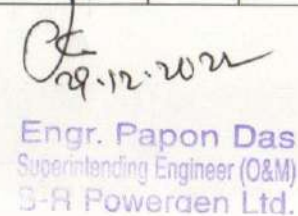 29.12.2022
Engr. Papon Das
Superintending Engineer (O&M)
S-R Powergen Ltd.